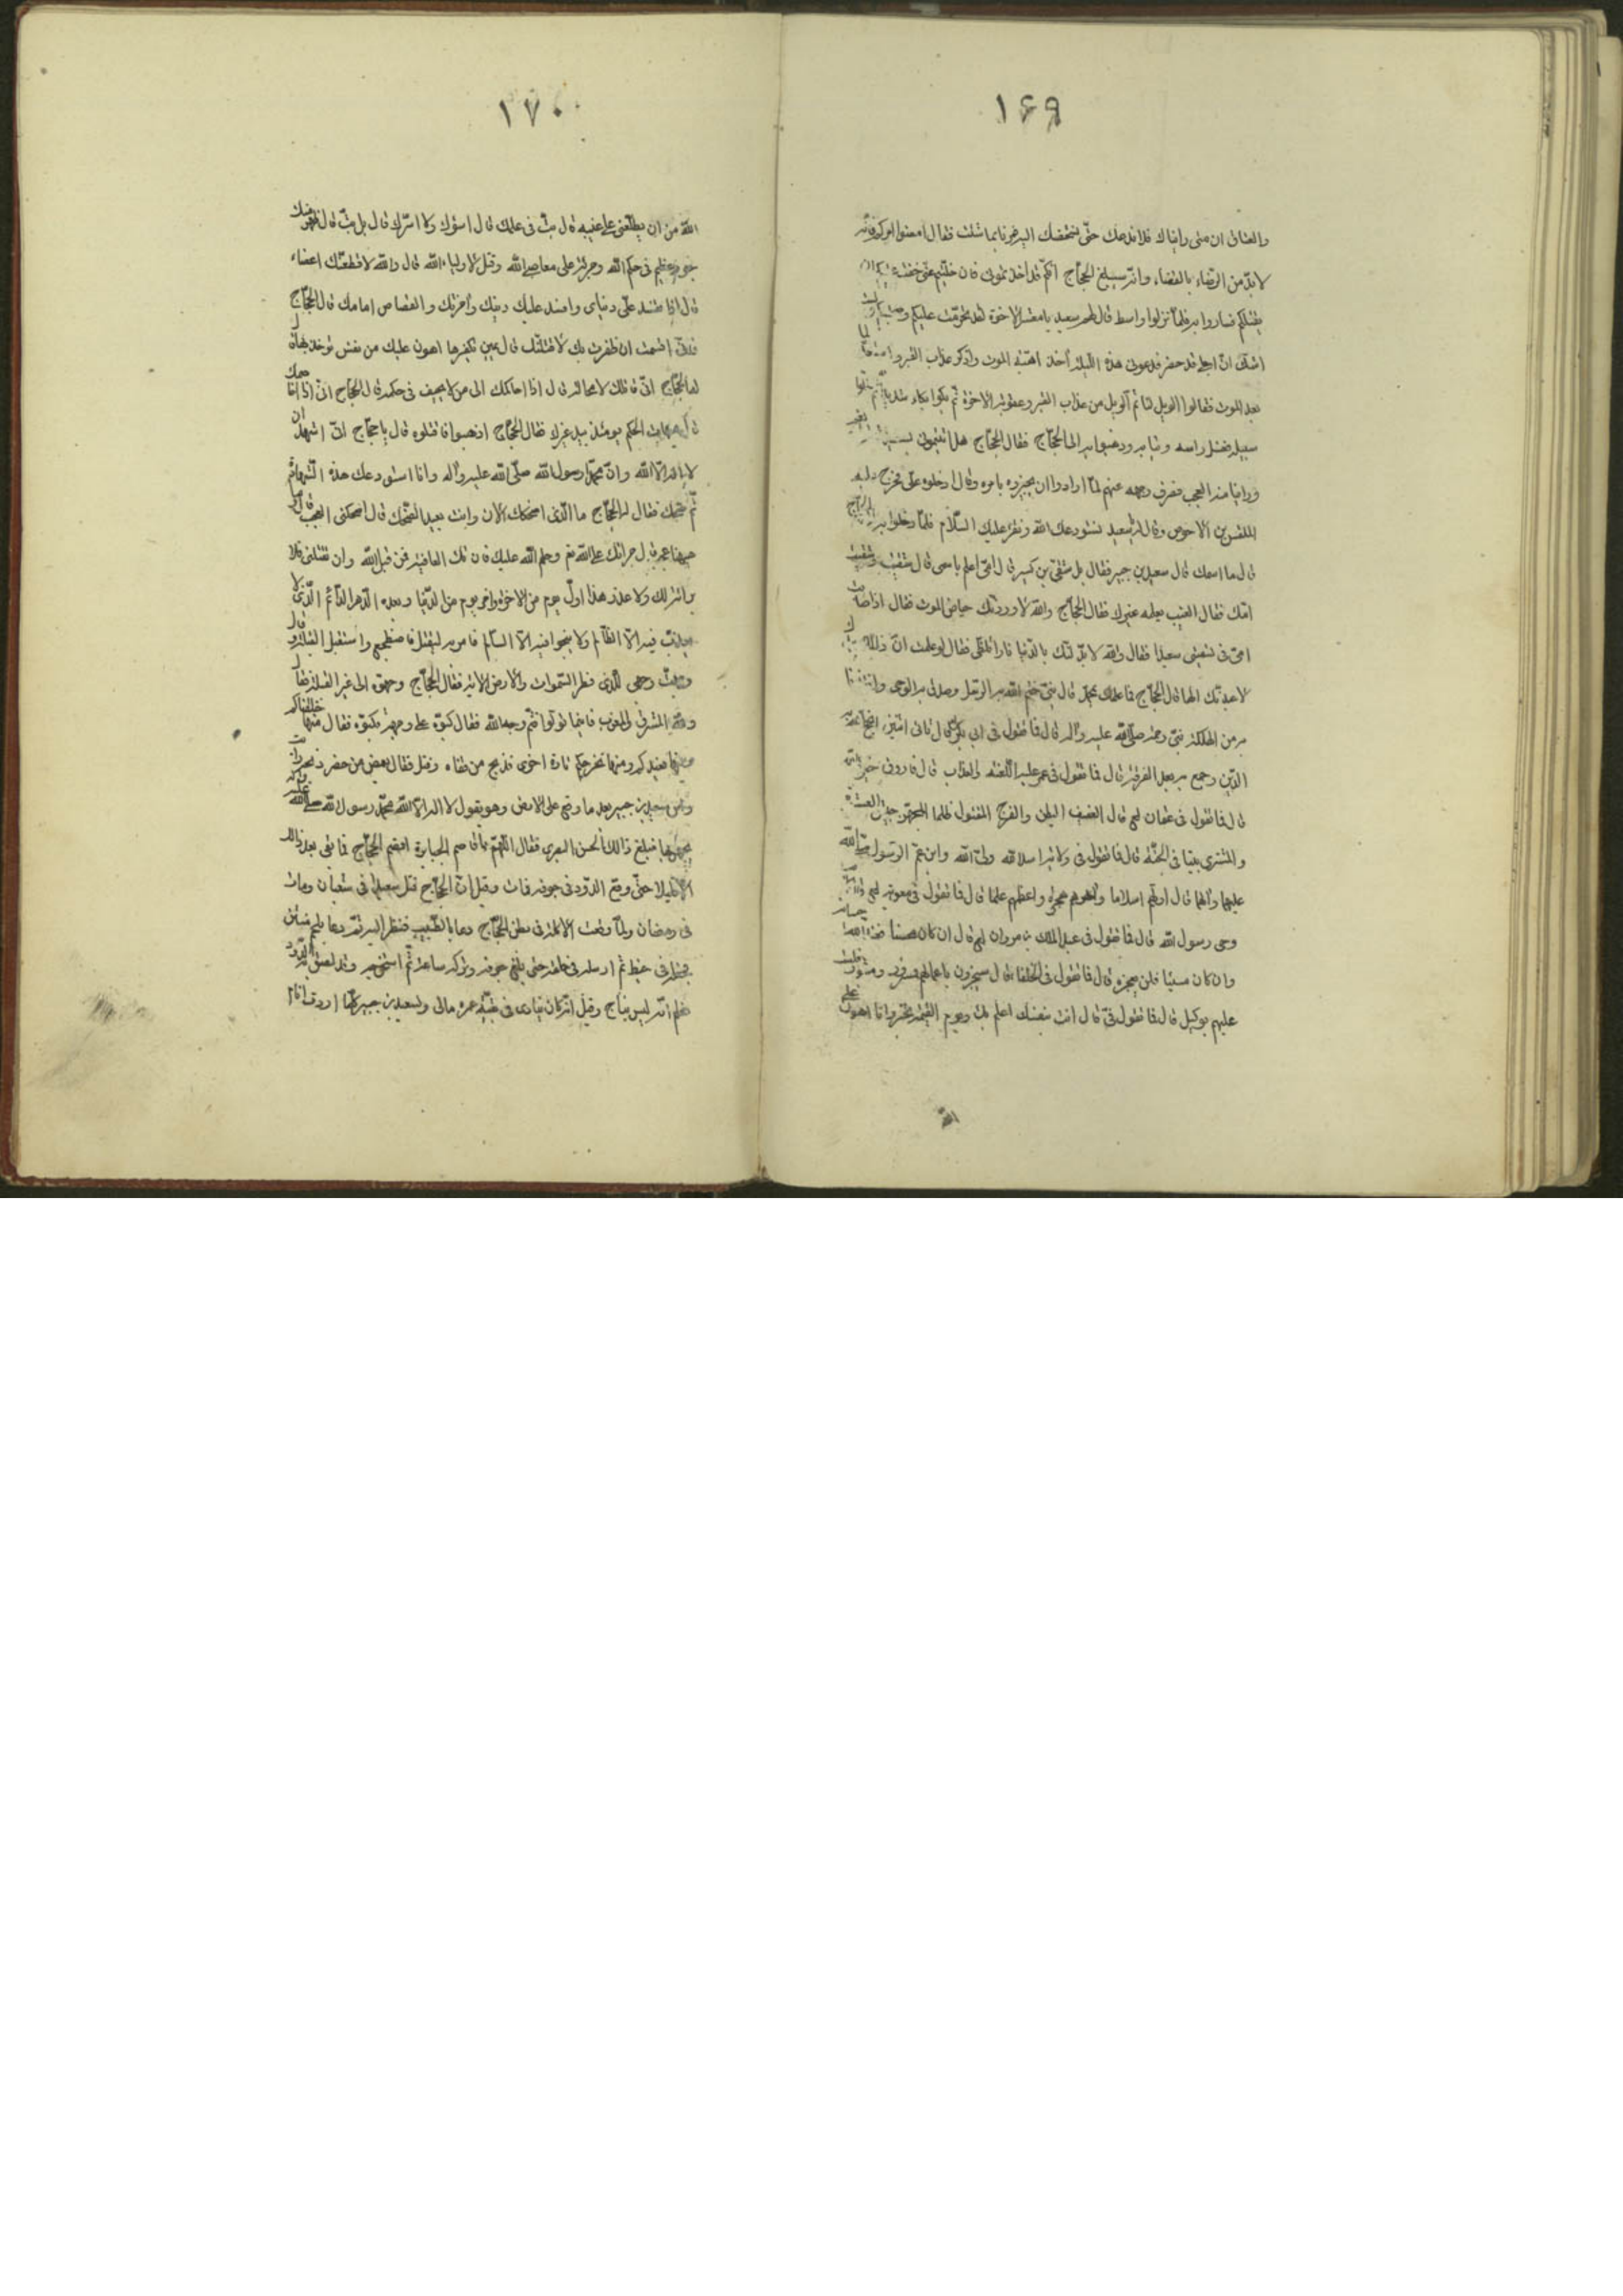 ١٦٩
والعتاق ان متى رايناك فلا ندعك حتى نشخصك اليه فمرنا بما شئت فقال امضوا لامركم فانه
لا بد من الرضاء بالقضاء وانه سيبلغ الحجاج انكم قد اخذتموني فان خليتم عني خفت عليكم ان
يقتلكم فساروا به فلما نزلوا واسط قال لهم سعيد يا معشر الاخوة لقد تحرمت عليكم وصحبتكم ولست
اشك ان اجلي قد حضر فدعوني هذه الليلة آخذ اهبة الموت واذكر عذاب القبر وما
بعد الموت فقالوا الويل لنا ثم الويل من عذاب القبر وعقوبة الاخرة ثم بكوا بكاء شديدا ثم خلوا
سبيله فغسل راسه وثيابه وذهبوا به الى الحجاج فقال الحجاج هل اتيتموني بسعيد قالوا نعم
وراينا منه العجب فصرف وجهه عنهم لما ارادوا ان يخبروه بامره وقال ادخلوه علي فخرج
الملتمس بن الاحوص وقال لسعيد نستودعك الله ونقرء عليك السلام فلما دخلوا به الى الحجاج
قال ما اسمك قال سعيد بن جبير فقال بل شقي بن كسير قال امي اعلم باسمي قال شقيت وشقيت
امك فقال الغيب يعلمه غيرك فقال الحجاج والله لاوردنك حياض الموت فقال اذا اصابت
امي في تسميتي سعيدا فقال والله لابدلنك بالدنيا نارا تلظى فقال لو علمت ان ذلك اليك
لاعبدتك الها قال الحجاج فما علمك بمحمد قال نبي ختم الله به الرسل وصدق به الوحي وانقذنا
به من الهلكة نبي رحمة صلى الله عليه وآله قال فما تقول في ابي بكر قال ثاني اثنين
الدين وجمع به بعد الفرقة قال فما تقول في عمر عليه اللعنة والعذاب قال فاروق
قال فما تقول في عثمان قال العفيف البطن والفرج المقتول ظلما المجهز جيش العسرة
والمشتري بيتا في الجنة قال فما تقول في ولاية اسد الله ولي الله وابن عم الرسول صلى الله
عليهما وآلهما قال اولهم اسلاما واعظمهم علما قال فما تقول في معوية قال
وحي رسول الله قال فما تقول في عبد الملك بن مروان قال ان كان محسنا
وان كان مسيئا فلن يعجزه قال فما تقول في الخلفاء قال سيجزون باعمالهم ولست
عليهم بوكيل قال فما تقول في قال انت بنفسك اعلم بك ويوم القيمة تخبر وانا اهون على
الله
١٧٠
الله من ان يطلعني على غيبه قال بث في علمك قال اسؤك ولا اسرك قال بل بث قال ظهر منك
جور عظيم في حكم الله وجرئة على معاصي الله وقتل لاولياء الله قال والله لاقطعنك اعضاء
قال اذا تفسد علي دنياي وافسد عليك دينك وآخرتك والقصاص امامك قال الحجاج
فاني اقسمت ان ظفرت بك لاقتلنك قال يمين تكفرها اهون عليك من نفس توخذ بها قال
له الحجاج اني قاتلك لا محالة قال اذا احاكمك الى من لا يحيف في حكمه قال الحجاج اني اذا اخاصمك
قال هيهات الحكم يومئذ بيد غيرك فقال الحجاج اذهبوا فاقتلوه قال يا حجاج اني اشهد ان
لا اله الا الله وان محمدا رسول الله صلى الله عليه وآله وانا استودعك هذه الشهادة
ثم ضحك فقال له الحجاج ما الذي اضحكك الآن وانت بعيد الضحك قال اضحكني العجب قال
قال جرائتك على الله تع وحلم الله عليك فان تك العافية فمن قبل الله وان تقتلني فلا
برائة لك ولا عذر هذا اول يوم من الاخرة وآخر يوم من الدنيا وبعده الدهر الدائم الذي لا
يعذب فيه الا الظالم ولا ينجو فيه الا السالم فامر به ليقتل فاضطجع واستقبل القبلة وقال
وجهت وجهي للذي فطر السموات والارض الاية فقال الحجاج وجهوه الى غير القبلة فقال
ولله المشرق والمغرب فاينما تولوا فثم وجه الله فقال كبوه على وجهه فكبوه فقال منها خلقناكم
وفيها نعيدكم ومنها نخرجكم تارة اخرى فذبح من قفاه وقتل فقال بعض من حضر
راس سعيد بن جبير بعد ما وقع على الارض وهو يقول لا اله الا الله محمد رسول الله صلى الله عليه وآله
فبلغ ذلك الحسن البصري فقال اللهم يا قاصم الجبابرة اقصم الحجاج فما بقي بعد ذلك
الا قليلا حتى وقع الدود في جوفه فمات وقيل ان الحجاج قتل سعيدا في شعبان ومات
في رمضان ولما وقعت الاكلة في بطن الحجاج دعا بالطبيب فنظر اليه ثم دعا بلحم منتن
في خيط ثم ارسله في حلقه حتى بلغ جوفه وتركه ساعة ثم استخرجه وقد لصق الدود
فعلم انه ليس بناج وقيل انه كان ينادي في بقية عمره مالي ولسعيد بن جبير كلما اردت انام